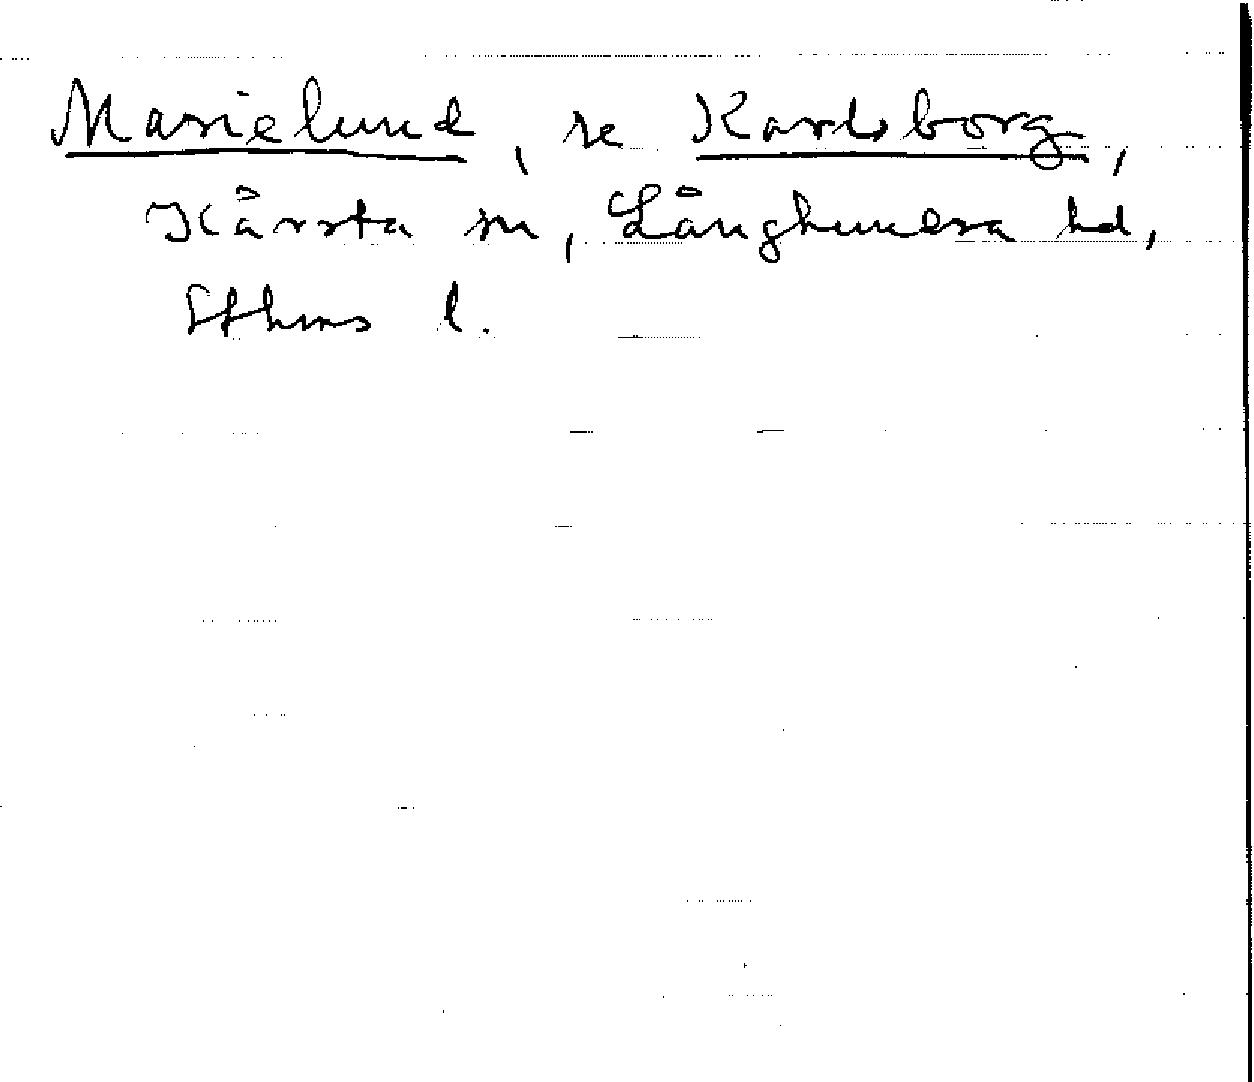 Marielund, se Karlsborg,
Kårsta sn, Långhundra hd,
Sthms l.